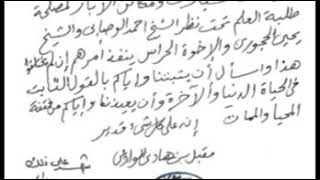 طلبة العلم تحت نظر الشيخ أحمد الوصابي والشيخ
يحيى الحجوري والإخوة الحراس ينفذ أمرهم إن لم
هذا وأسأل الله أن يثبتنا وإياكم بالقول الثابت
في الحياة الدنيا والآخرة وأن يعيذنا وإياكم من فتنة
المحيا والممات إنه على كل شيء قدير
مقبل بن هادي الوادعي
شهد على ذلك